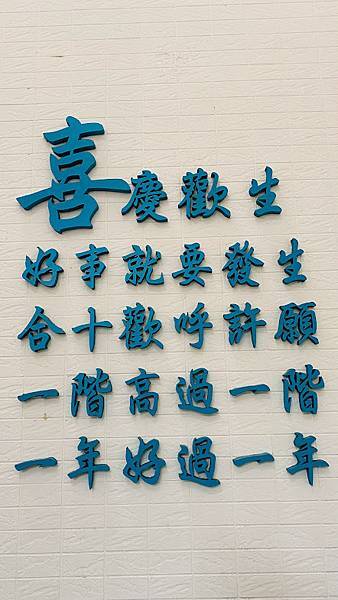 喜慶歡生
好事就要發生
舍十歡呼許願
一階高過一階
一年好過一年